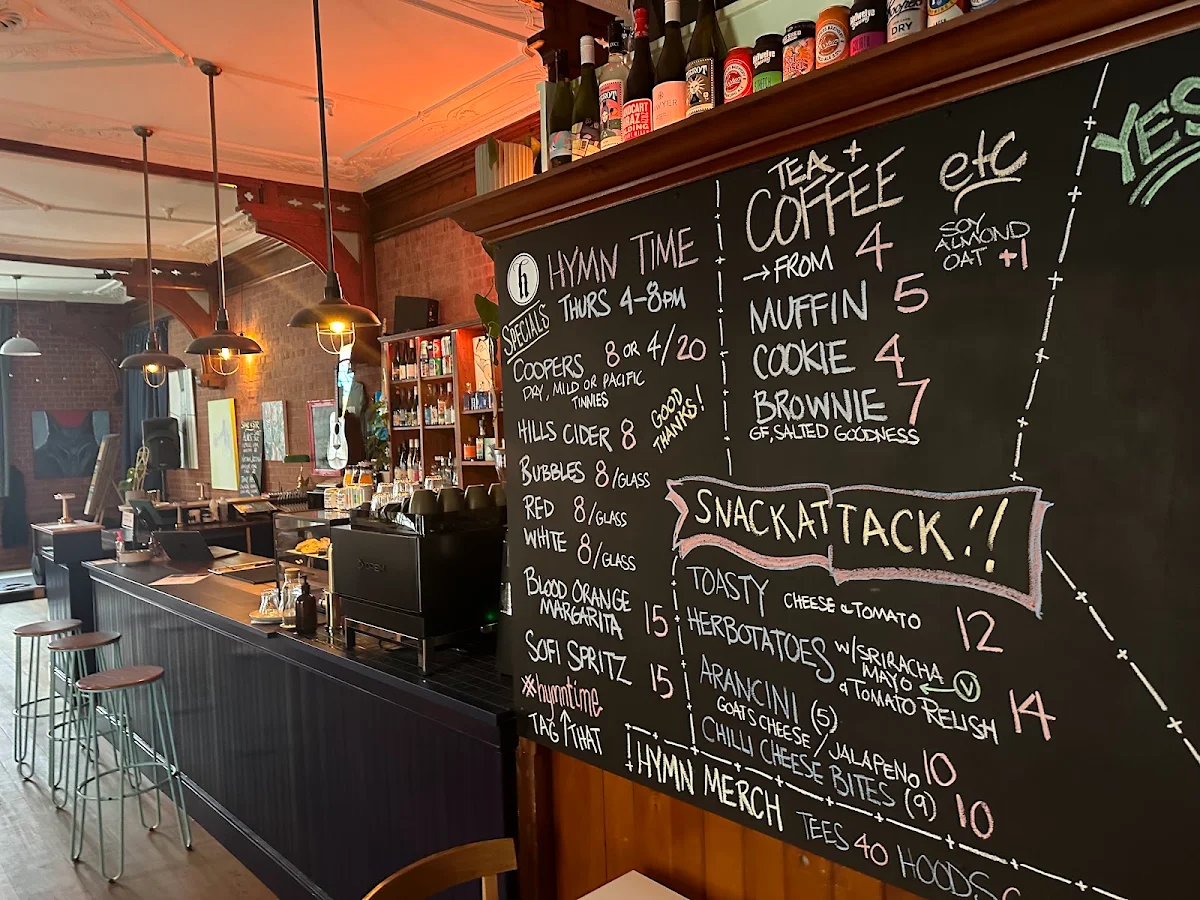 h HYMN TIME
THURS 4-8PM
SPECIALS
COOPERS 8 OR 4/20
DRY, MILD OR PACIFIC
TINNIES
GOOD
THANKS!
HILLS CIDER 8
BUBBLES 8/GLASS
RED 8/GLASS
WHITE 8/GLASS
BLOOD ORANGE
MARGARITA 15
SOFI SPRITZ 15
#hymntime
TAG ↑ THAT
TEA +
COFFEE
→ FROM 4
etc
SOY
ALMOND
OAT +1
MUFFIN 5
COOKIE 4
BROWNIE 7
GF, SALTED GOODNESS
YES
SNACKATTACK!!
TOASTY CHEESE & TOMATO 12
HERBOTATOES W/SRIRACHA
MAYO ← V
& TOMATO RELISH 14
ARANCINI (5)
GOATS CHEESE / JALAPENO 10
CHILLI CHEESE BITES (9) 10
HYMN MERCH
TEES 40 HOODS
DRY